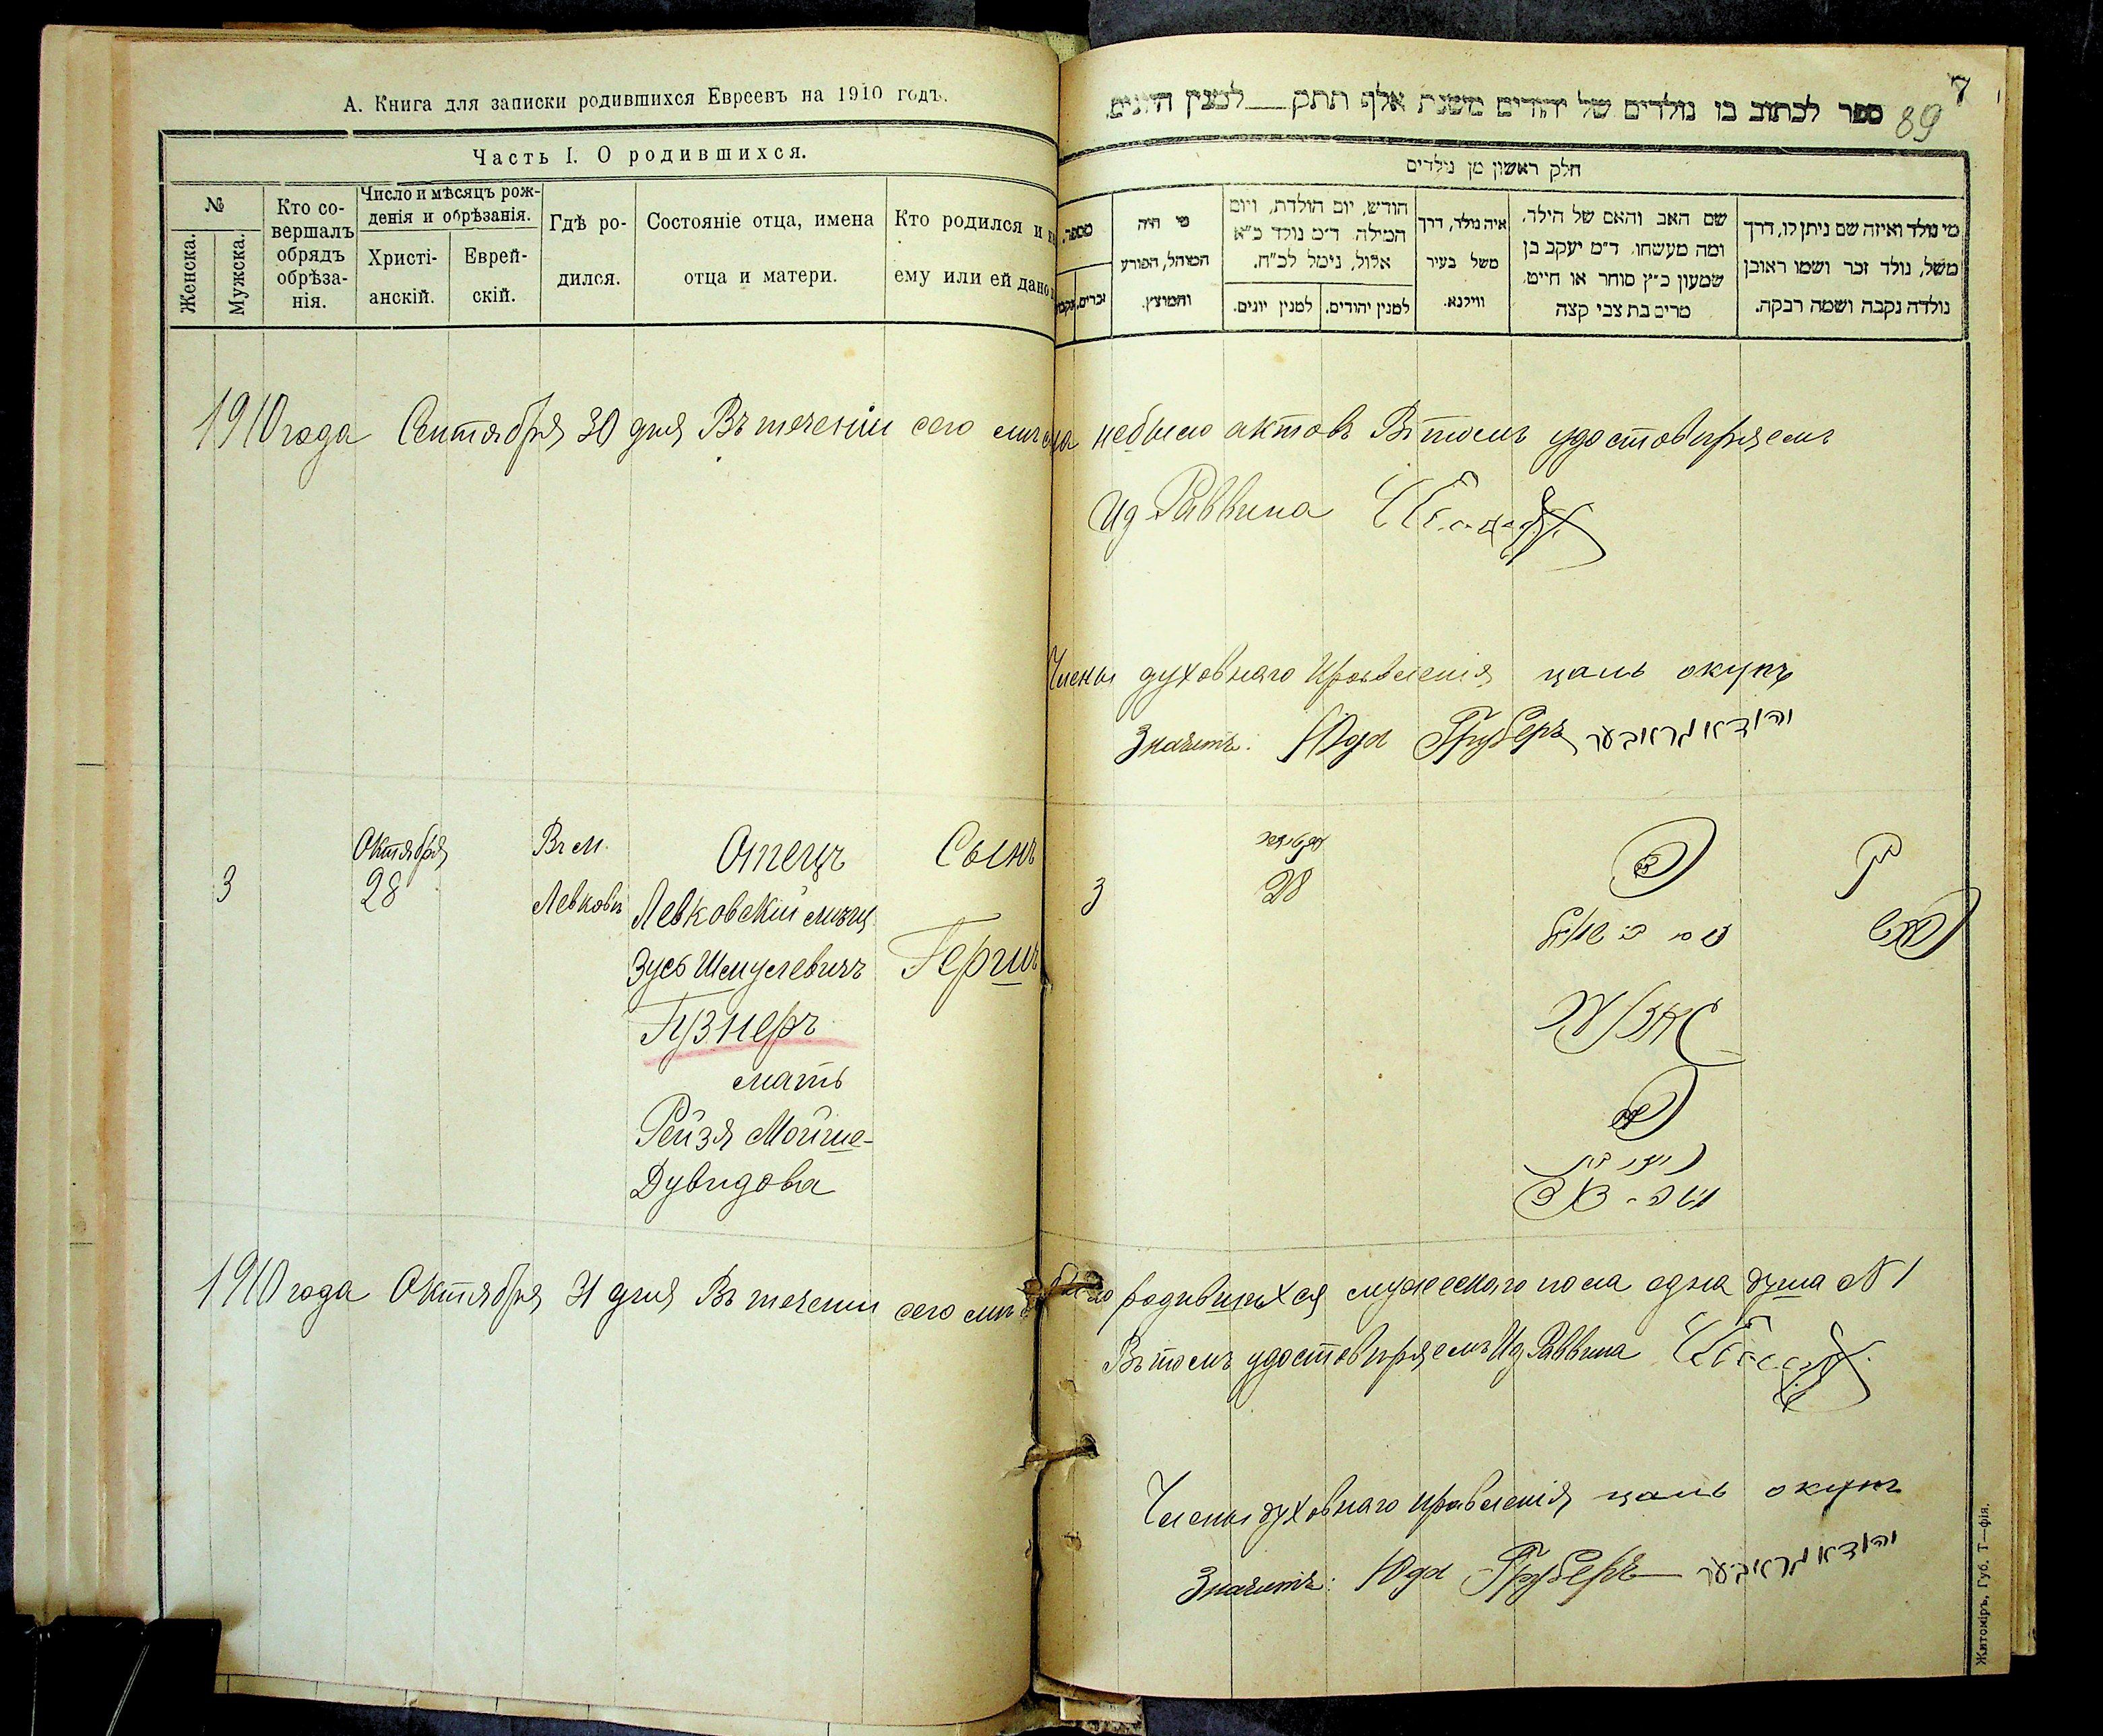 А. Книга для записки родившихся Евреевъ на 1910 годъ.
Часть I. О родившихся.
№
Женска.
Мужска.
Кто со-
вершалъ
обрядъ
обрѣза-
нія.
Число и мѣсяцъ рож-
денія и обрѣзанія.
Христі-
анскій.
Еврей-
скій.
Гдѣ ро-
дился.
Состояніе отца, имена
отца и матери.
Кто родился и
ему или ей дано
7
89
ספר לכתוב בו נולדים של יהודים משנת אלף תתק למנין היונים
חלק ראשון מן נולדים
מספר.
זכרים.
מי היה
המוהל, הפורע
והמוצץ.
חודש, יום הולדת, ויום
המילה. ד״מ נולד כ״א
אלול, נימל לכ״ח.
למנין יונים.
למנין יהודים.
איה נולד, דרך
משל בעיר
ווילנא.
שם האב והאם של הילד,
ומה מעשהו. ד״מ יעקב בן
שמעון כ״ץ סוחר או חייט,
מרים בת צבי קצה
מי נולד ואיזה שם ניתן לו, דרך
משל, נולד זכר ושמו ראובן
נולדה נקבה ושמה רבקה.
1910 года Сентября 30 дня Въ теченіи сего небыло актовъ Въ томъ удостовѣряемъ
Ид Раввина
Члены духовнаго Правленія цаль окунь
Значитъ: Юда Груберъ יהודא גראובער
3
Октября
28
Въ м.
Левковъ
Отецъ
Левковскій мѣщ
Зусь Шмулевичъ
Гузнеръ
мать
Рейзя Мойше-
Дувидова
Сынъ
Гершъ
3
28
1910 года Октября 31 дня Въ теченіи сего родившихся мужескаго пола одна душа № 1
Въ томъ удостовѣряемъ Ид Раввина
Члены духовнаго правленія цаль окунь
Значитъ: Юда Груберъ יהודא גראובער
Житоміръ, Губ. Т—фія.